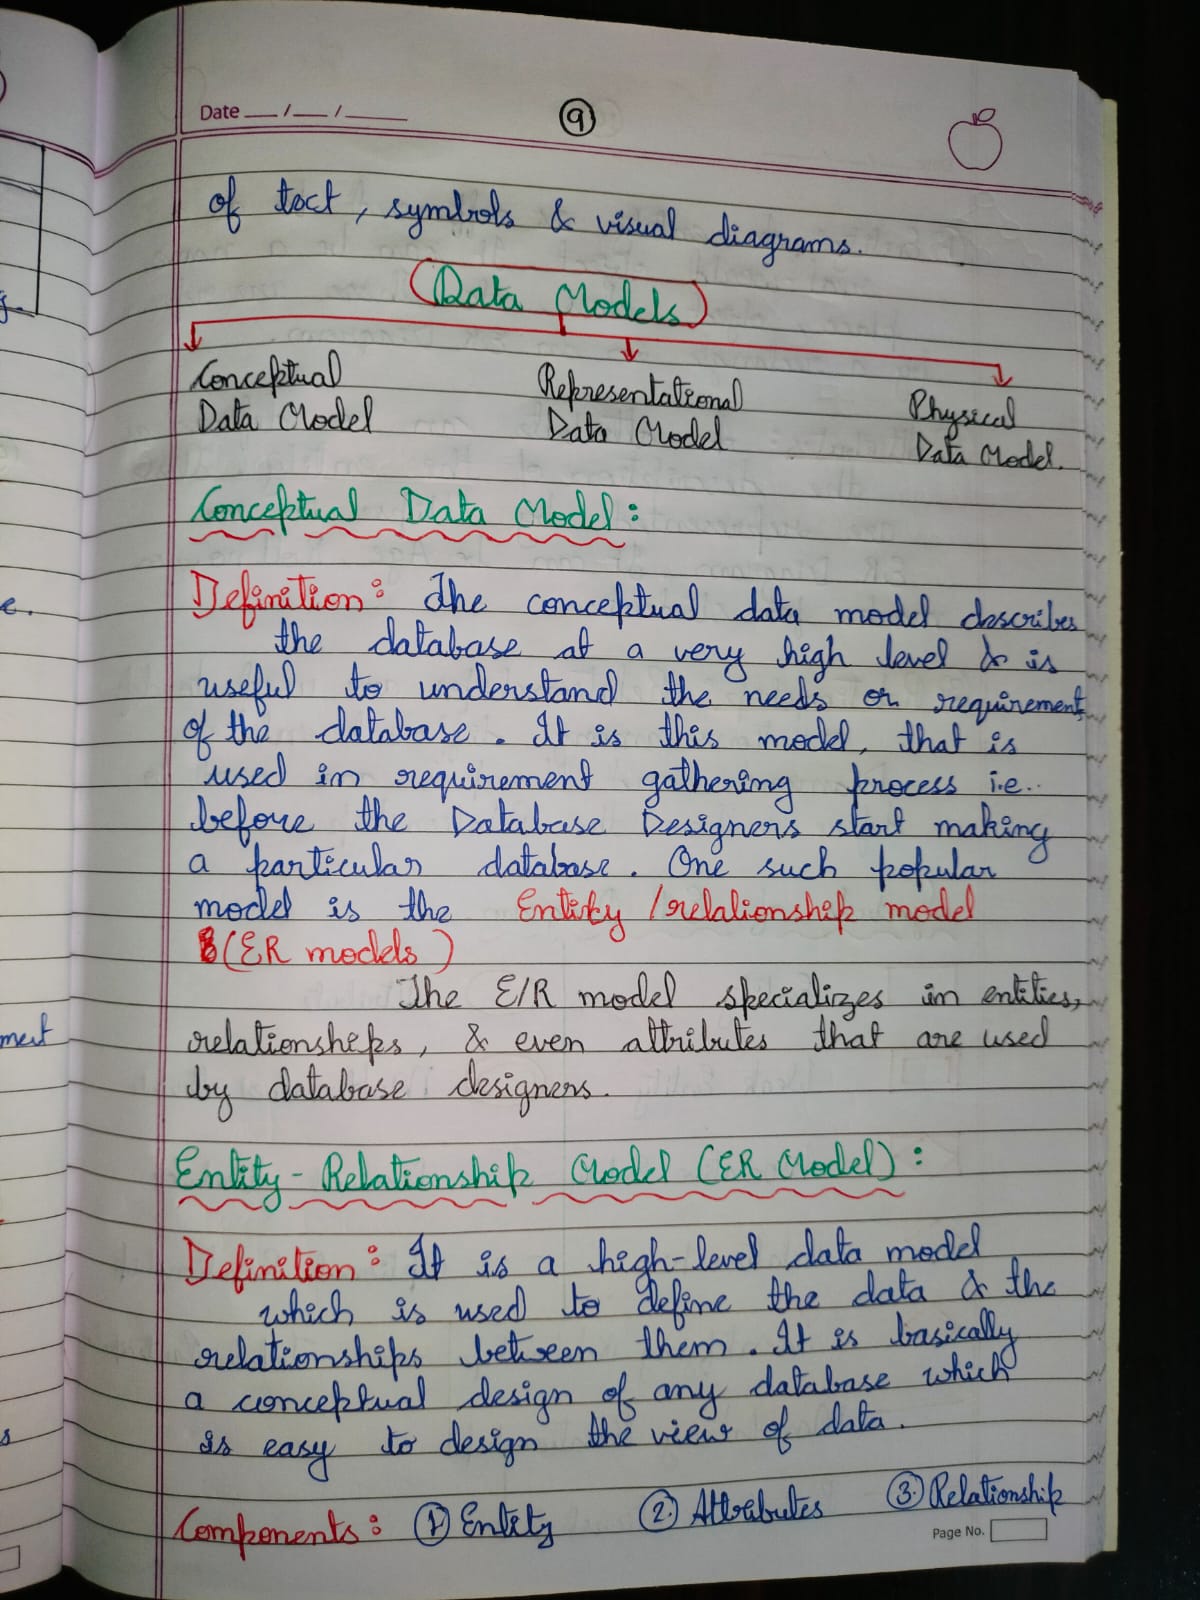 Date __/__/____
9
of text, symbols & visual diagrams.
Data Models
Conceptual
Data Model
Representational
Data Model
Physical
Data Model.
Conceptual Data Model:
Definition: The conceptual data model describes
the database at a very high level & is
useful to understand the needs or requirement
of the database. It is this model, that is
used in requirement gathering process i.e..
before the Database Designers start making
a particular database. One such popular
model is the Entity/relationship model
(ER models)
The E/R model specializes in entities,
relationships, & even attributes that are used
by database designers.
Entity-Relationship Model (ER Model):
Definition: It is a high-level data model
which is used to define the data & the
relationships between them. It is basically
a conceptual design of any database which
is easy to design the view of data.
Components: ① Entity ② Attributes ③ Relationship
Page No.
e.
ment
s